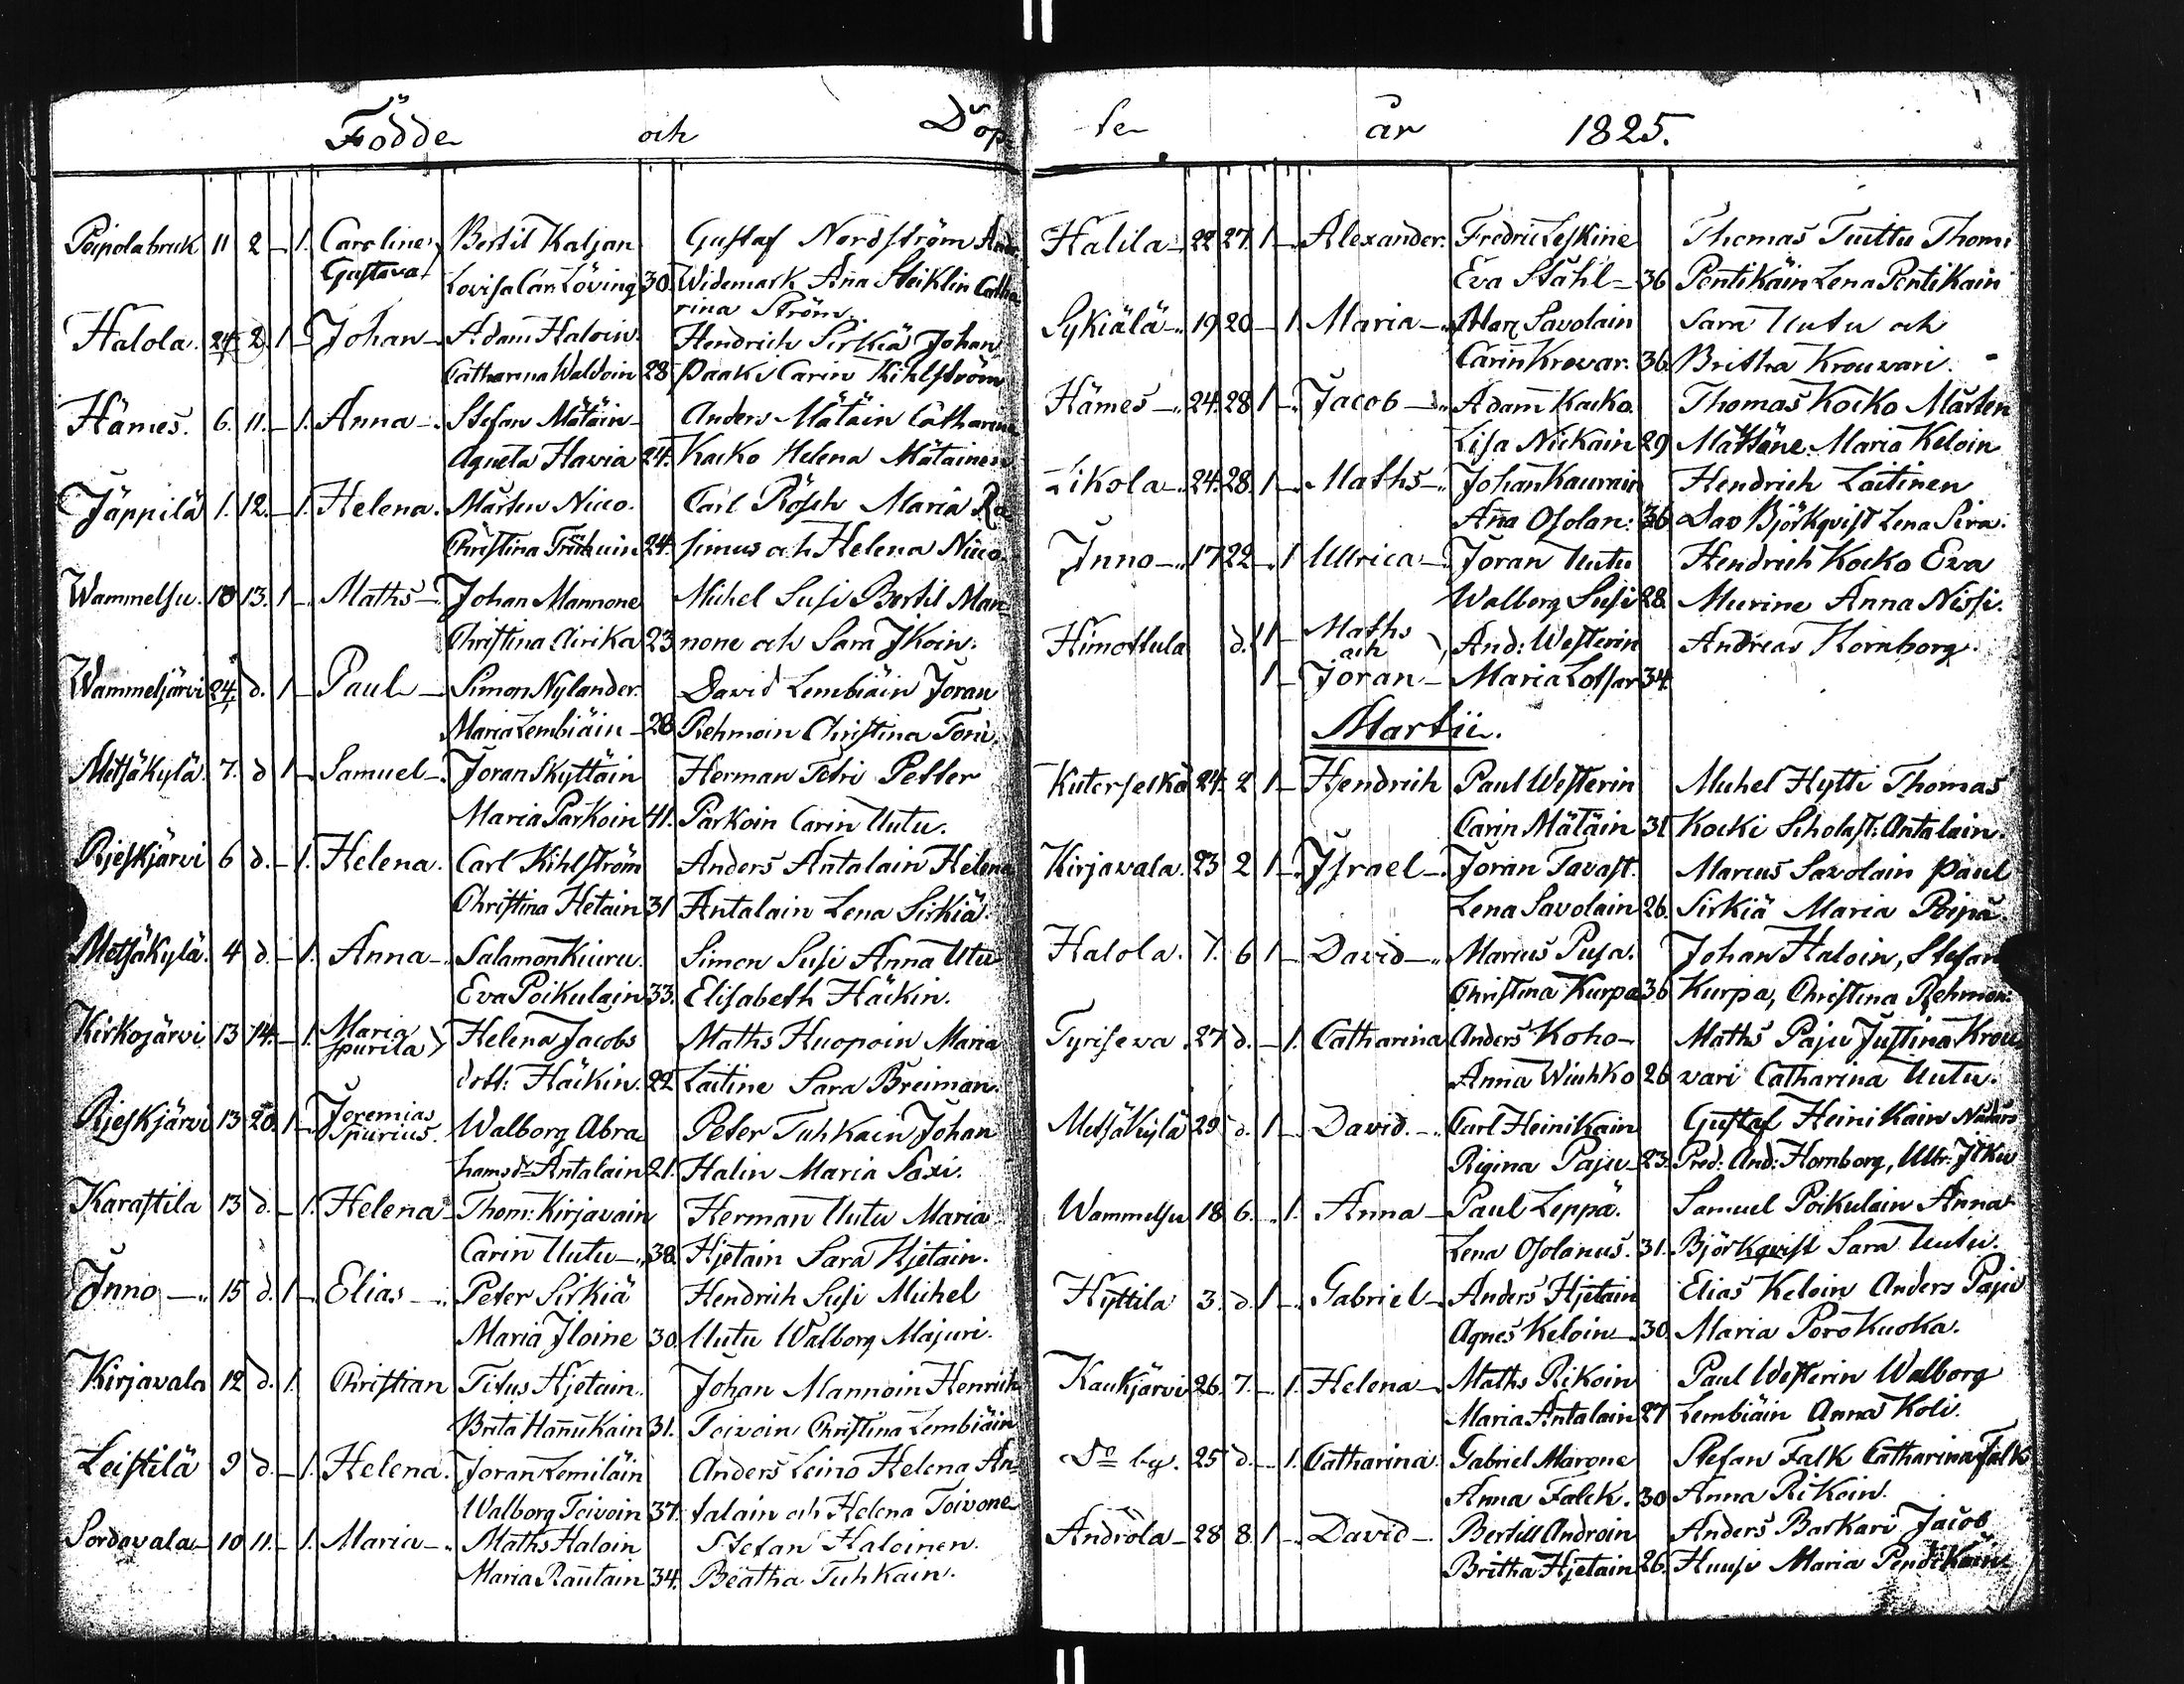 Födde och Döp
Peipola bruk 11 2 – 1. Carolina Bertil Kaljan Gustaf Nordström
Gustava Lovisa Car: Löving 30 Widemark Aña Steiklin Catha
rina Ström.
Halola. 24 2 1 – Johan – Adam Haloin. Hendrich Sirkiä Johan
Catharina Waldoin 28 Paaki Carin Kihlström
Hämes. 6. 11. – 1. Anna –. Stefan Mätäin – Anders Mätäin Catharina
Agneta Havia 24. Kocko Helena Mätäinen
Jäppilä 1. 12. – 1. Helena. Mårten Nicco. Carl Rösch Maria Ra
Christina 24. simus och Helena Nicco.
Wammelsu. 10 13. 1 – Maths –. Johan Mannone Michel Susi Bertil Man
Christina Airika 23 none och Sara Ikoin.
Wammeljärvi 24. d. 1 – Paul – Simon Nylander. David Lembiäin Jöran
Maria Lembiäin – 28 Rehmoin Christina Torri.
Metsäkylä. 7. d 1 – Samuel –. Jöran Skyttäin Herman Tetri Petter
Maria Parkoin 41. Parkoin Carin Uutu.
Rjeskjärvi 6 d. – 1. Helena. Carl Kihlström Anders Antalain Helena
Christina Hetain 31 Antalain Lena Sirkiä.
Metsäkylä. 4 d. – 1. Anna –. Salamon Kiuru. Simon Susi Anna Utu
Eva Poikulain 33. Elisabeth Häikin.
Kirkojärvi 13 14. – 1. Maria spurila Helena Jacobs Maths Huopoin Maria
dott: Häikin. 22 Laitine Sara Breiman.
Rjeskjärvi 13 20. 1 – Jeremias Spurius. Walborg Abra Peter Tuhkain Johan
hams dr Antalain 21. Halin Maria Saxi.
Karastila 13 d. – 1. Helena Thom: Kirjavain Herman Uutu Maria
Carin Uutu –. 38. Hjetain Sara Hjetain.
Inno –. 15 d. 1 – Elias –. Peter Sirkiä Hendrich Susi Michel
Maria Iloine 30. Uutu Walborg Majuri.
Kirjavala 12 d. 1. Christian Titus Hjetain. Johan Mannoin Henrich
Brita Hañukain 31. Toivoin Christina Lembiäin
Leistilä 9 d. – 1. Helena. Jöran Lemiläin Anders Leino Helena An
Walborg Toivoin 37. talain och Helena Toivone
Sordavala – 10 11. – 1. Maria –. Maths Haloin Stefan Haloinen.
Maria Rautain 34. Beatha Tuhkain.
te år 1825.
Halila –. 22 27. 1 – Alexander. Fredric Leskine Thomas Tuittu Thom
Eva Ståhl – 36 Pentikäin Lena Pentikain
Sykiälä –. 19 20 – 1. Maria –. Marc Savolain Sara Uutu och
Carin Krovar. 36. Britha Krouvari.
Hämes –. 24. 28 1 –. Jacob –. Adam Kocko. Thomas Kocko Mårten
Lisa Nickain 29 Maria Keloin
Likola –. 24. 28. 1 –. Maths –. Johan Hendrich Laitinen
Aña Osolan: 36 Dav Björkqvist Lena Sira.
Inno –. 17 22 –. 1 Ullrica –. Jöran Uutu Hendrich Kocko Eva
Walborg Susi 28. Murine Anna Nissi.
Himottula d. 1 – Maths och And: Westerin Andreas Hornborg.
1 – Jöran – Maria Lotsar 34.
Martii.
Kuterselkä 24. 2 1 – Hendrich Paul Westerin Michel Hytti Thomas
Carin Mätäin 31 Kocki Scholast: Antalain.
Kirjavala. 23 2 1 –. Israel –. Jöran Tavast. Marcus Savolain Paul
Lena Savolain 26. Sirkiä Maria Peipa.
Halola. 7. 6 1 – David –. Marcus Pusa. Johan Haloin, Stefan
Christina Kurpa 36 Kurpa, Christina Rehmoi:
Tyriseva 27 d. – 1. Catharina Anders Koho – Maths Paju Justina Krou
Anna Wiuhko 26 vari Catharina Uutu.
Metsäkylä 29 d. 1 –. David. –. Carl Heinikain Gustaf Heinikain
Rigina Paju – 23. Pred: And: Hornborg, Ulr: Ikku
Wammelsu 18 6. –. 1. Anna – Paul Leppä. Samuel Poikulain Anna
Lena Osolanus. 31. Björkqvist Sara Uutu.
Hyttila 3. d. 1 –. Gabriel –. Anders Hjetain Elias Keloin Anders Paju
Agnes Keloin –. 30. Maria Porokuoka.
Kaukjärvi 26. 7. –. 1. Helena –. Maths Rikoin Paul Westerin Walborg
Maria Antalain 27 Lembiäin Anna Koli.
Do by. 25 d. –. 1. Catharina. Gabriel Marone Stefan Falk Catharina Falk
Anna Falck. 30 Anna Rikoin.
Androla – 28 8. 1 –. David –. Bertill Androin Anders Barkari Jacob
Britha Hjetain 26. Huusi Maria Pendikain